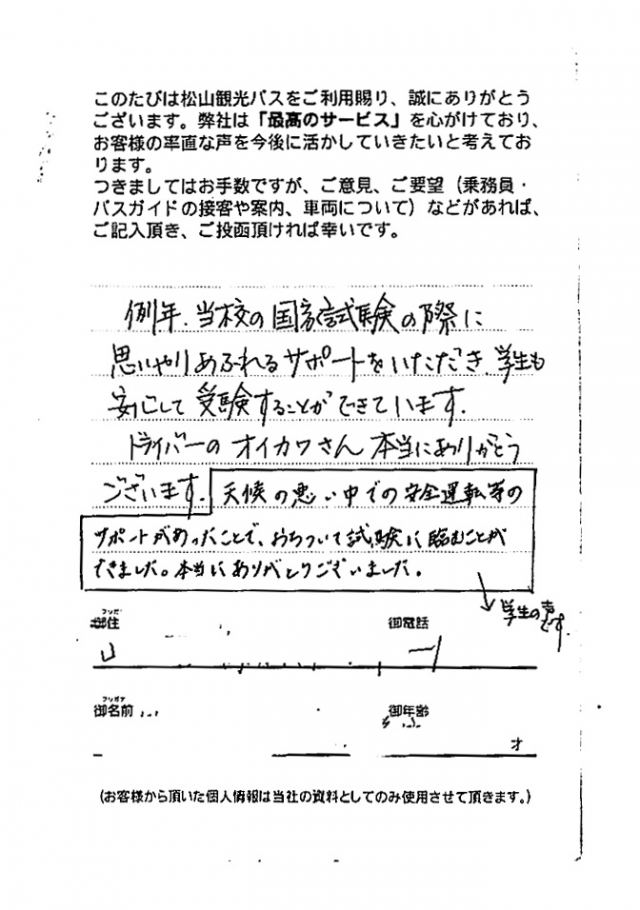 このたびは松山観光バスをご利用賜り、誠にありがとう
ございます。弊社は「最高のサービス」を心がけており、
お客様の率直な声を今後に活かしていきたいと考えてお
ります。
つきましてはお手数ですが、ご意見、ご要望（乗務員・
バスガイドの接客や案内、車両について）などがあれば、
ご記入頂き、ご投函頂ければ幸いです。
例年、当校の国家試験の際に
思いやりあふれるサポートをいただき、学生も
安心して受験することができています。
ドライバーのオイカワさん本当にありがとう
ございます。
天候の悪い中での安全運転等の
サポートがあったことで、おちついて試験に臨むことが
できました。本当にありがとうございました。
学生の声
です。
フリガナ
御住
御電話
フリガナ
御名前
御年齢
才
(お客様から頂いた個人情報は当社の資料としてのみ使用させて頂きます。)